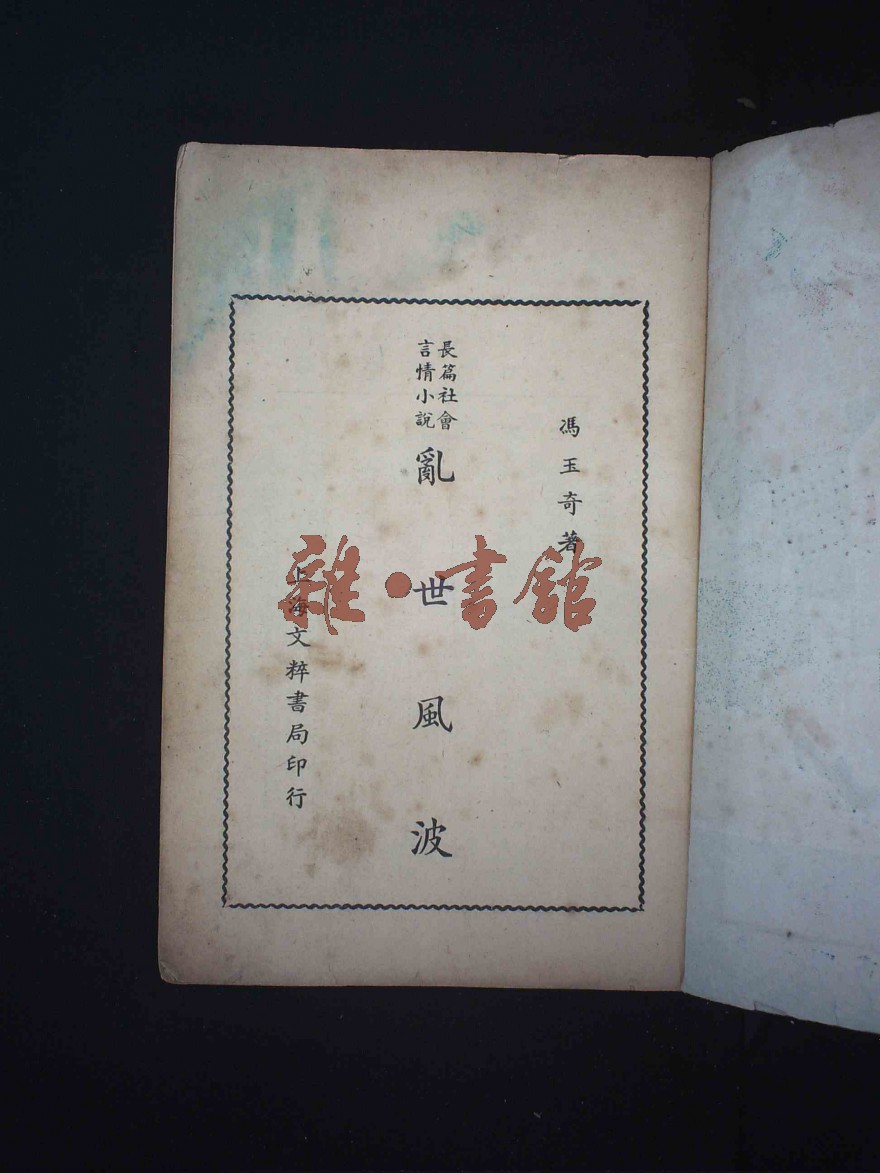 馮玉奇著
長篇社會
言情小說
亂世風波
上海文粹書局印行
雜·書館